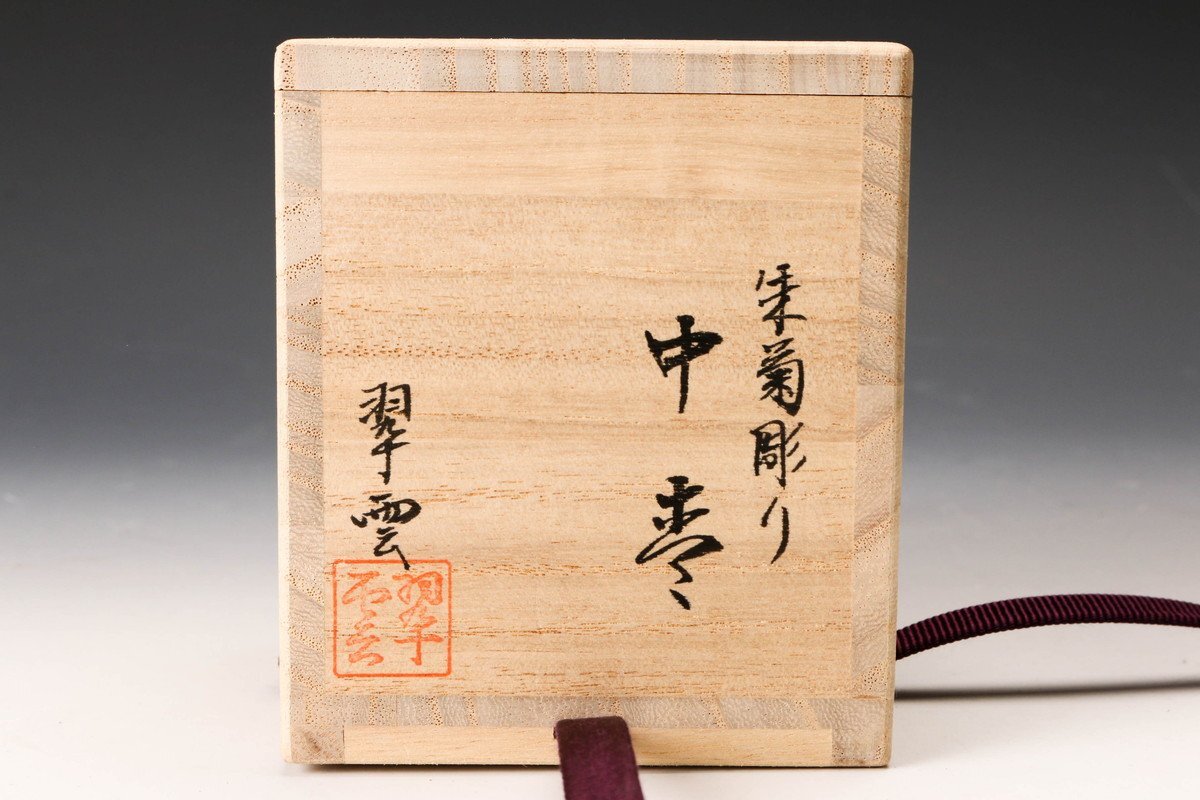 菊彫り
中棗
翠雲
翠雲